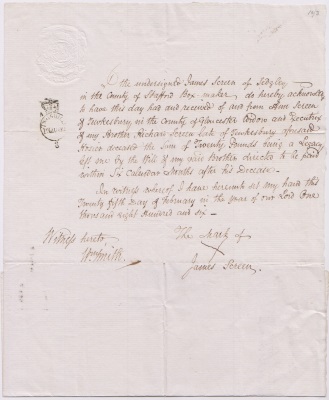 I the undersigned James Screen of Sedgley
in the County of Stafford Box-maker do hereby acknowledge
to have this day had and received of and from Ann Screen
of Tewkesbury in the County of Gloucester Widow and Executrix
of my Brother Richard Screen late of Tewkesbury aforesaid
deceased the Sum of Twenty Pounds being a Legacy
left me by the Will of my said Brother directed to be paid
within Six Calendar Months after his Decease.
In witness whereof I have hereunto set my hand this
Twenty fifth day of February in the year of our Lord One
thousand eight Hundred and six
Witness hereto,
Wm Smith.
The Mark of
X
James Screen.